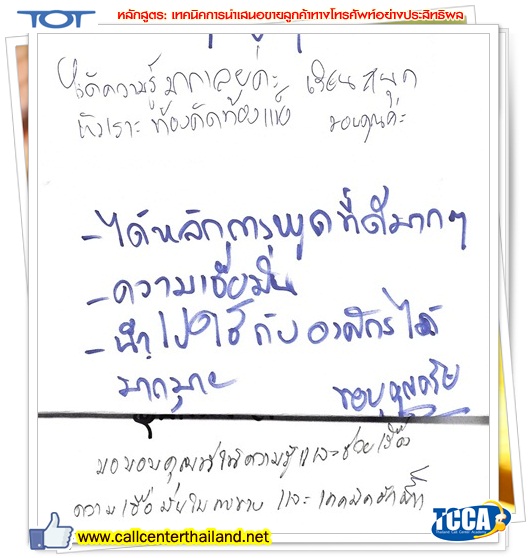 TOT หลักสูตร: เทคนิคการนำเสนอขายลูกค้าทางโทรศัพท์อย่างประสิทธิผล
ได้ความรู้มากเลยค่ะ เรียนสนุก
หัวเราะท้องคัดท้องแข็ง ขอบคุณค่ะ
- ได้หลักการพูดที่ดีมากๆ
- ความเชื่อมั่น
- นำไปใช้กับองค์กรได้
มากมาย ขอบคุณครับ
ขอขอบคุณที่ให้ความรู้และช่วยเรื่อง
ความเชื่อมั่นในการขาย และเทคนิค
www.callcenterthailand.net
TCCA
Thailand Call Center Academy